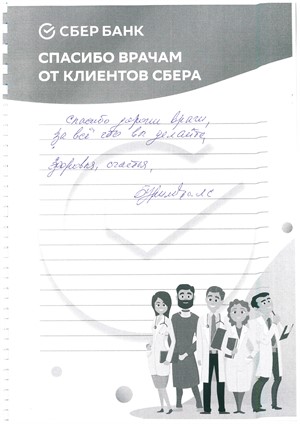 СБЕР БАНК
СПАСИБО ВРАЧАМ
ОТ КЛИЕНТОВ СБЕРА
Спасибо дорогие врачи,
за всё что вы делаете,
здоровья, счастья,